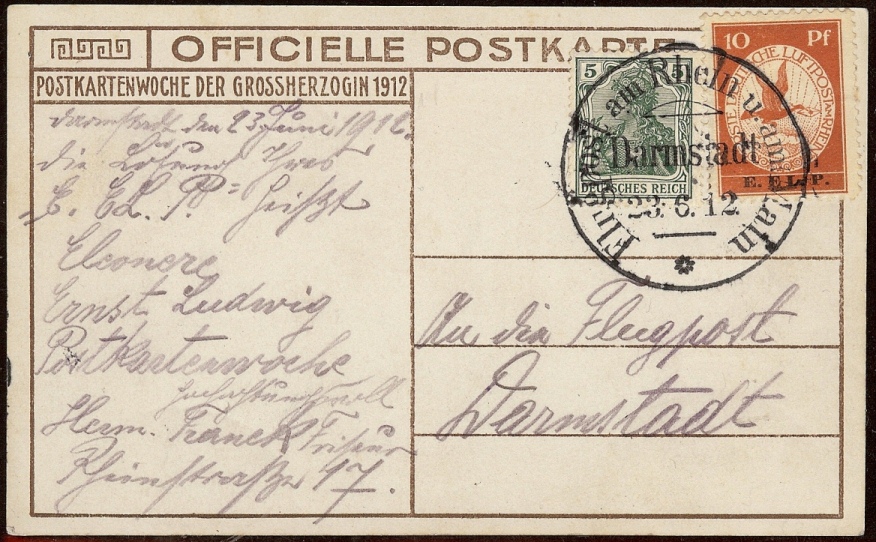 OFFICIELLE POSTKARTE
POSTKARTENWOCHE DER GROSSHERZOGIN 1912
Darmstadt den 23 Juni 1912.
die Lösung Ihres
„E. EL. P." heißt
Eleonore
Ernst Ludwig
Postkartenwoche
hochachtungsvoll
Herm. Franck Friseur
Rheinstraße 17.
5
5
DEUTSCHES REICH
10 Pf
ERSTE DEUTSCHE LUFTPOST AM RHEIN
E. EL. P.
Flugpost am Rhein u. am Main
Darmstadt
23. 6. 12
An die Flugpost
Darmstadt